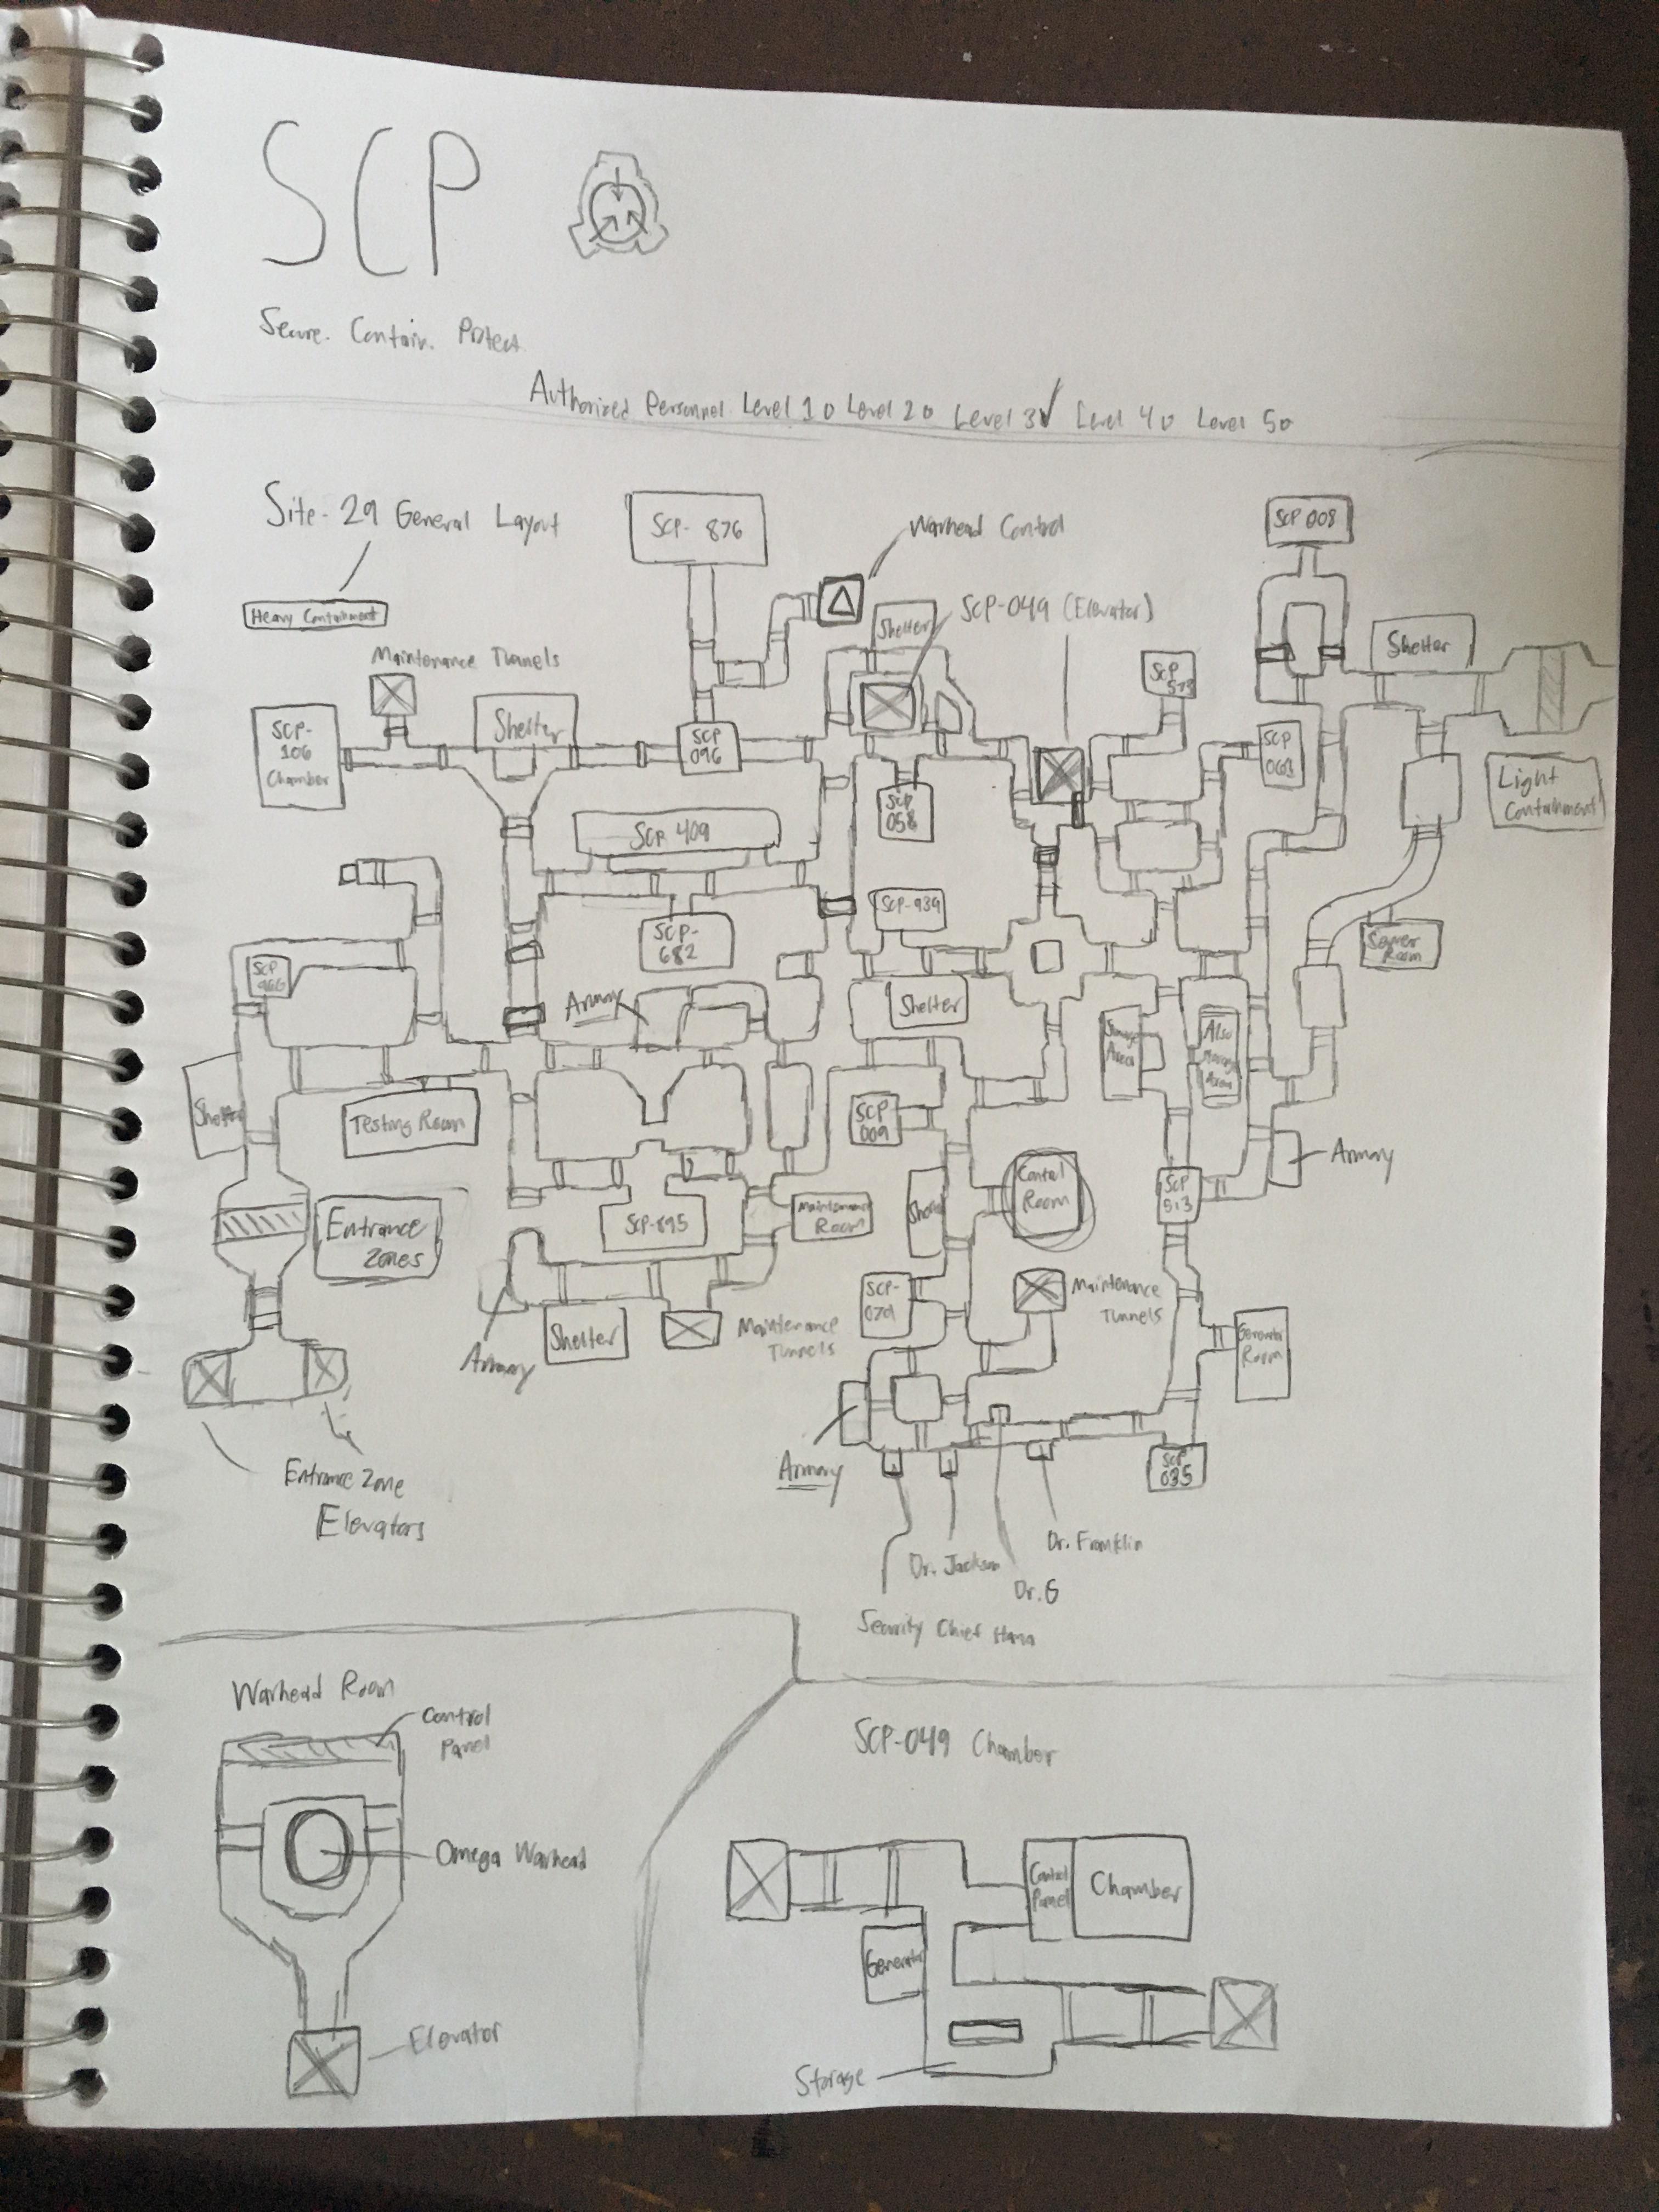 SCP
Secure. Contain. Protect.
Authorized Personnel Level 1 Level 2 Level 3 ✓ Level 4 Level 5
Site-29 General Layout
Heavy Containment
SCP-876
Warhead Control
SCP 008
Shelter
SCP-049 (Elevator)
Shelter
Maintenance Tunnels
SCP-
106
Chamber
Shelter
SCP
096
SCP
SCP
058
Light
Containment
SCP 409
SCP-939
SCP-
682
Sewer
Room
SCP
966
Armory
Shelter
Storage
Area
Shelter
Testing Room
SCP
009
Armory
Control
Room
SCP
513
Entrance
Zones
SCP-895
Maintenance
Room
SCP-
Maintenance
Tunnels
Armory
Shelter
Maintenance
Tunnels
Generator
Room
Armory
SCP
035
Entrance Zone
Elevators
Dr. Jackson
Dr. G
Dr. Franklin
Security Chief
Warhead Room
Control
Panel
Omega Warhead
Elevator
SCP-049 Chamber
Control
Panel
Chamber
Generator
Storage